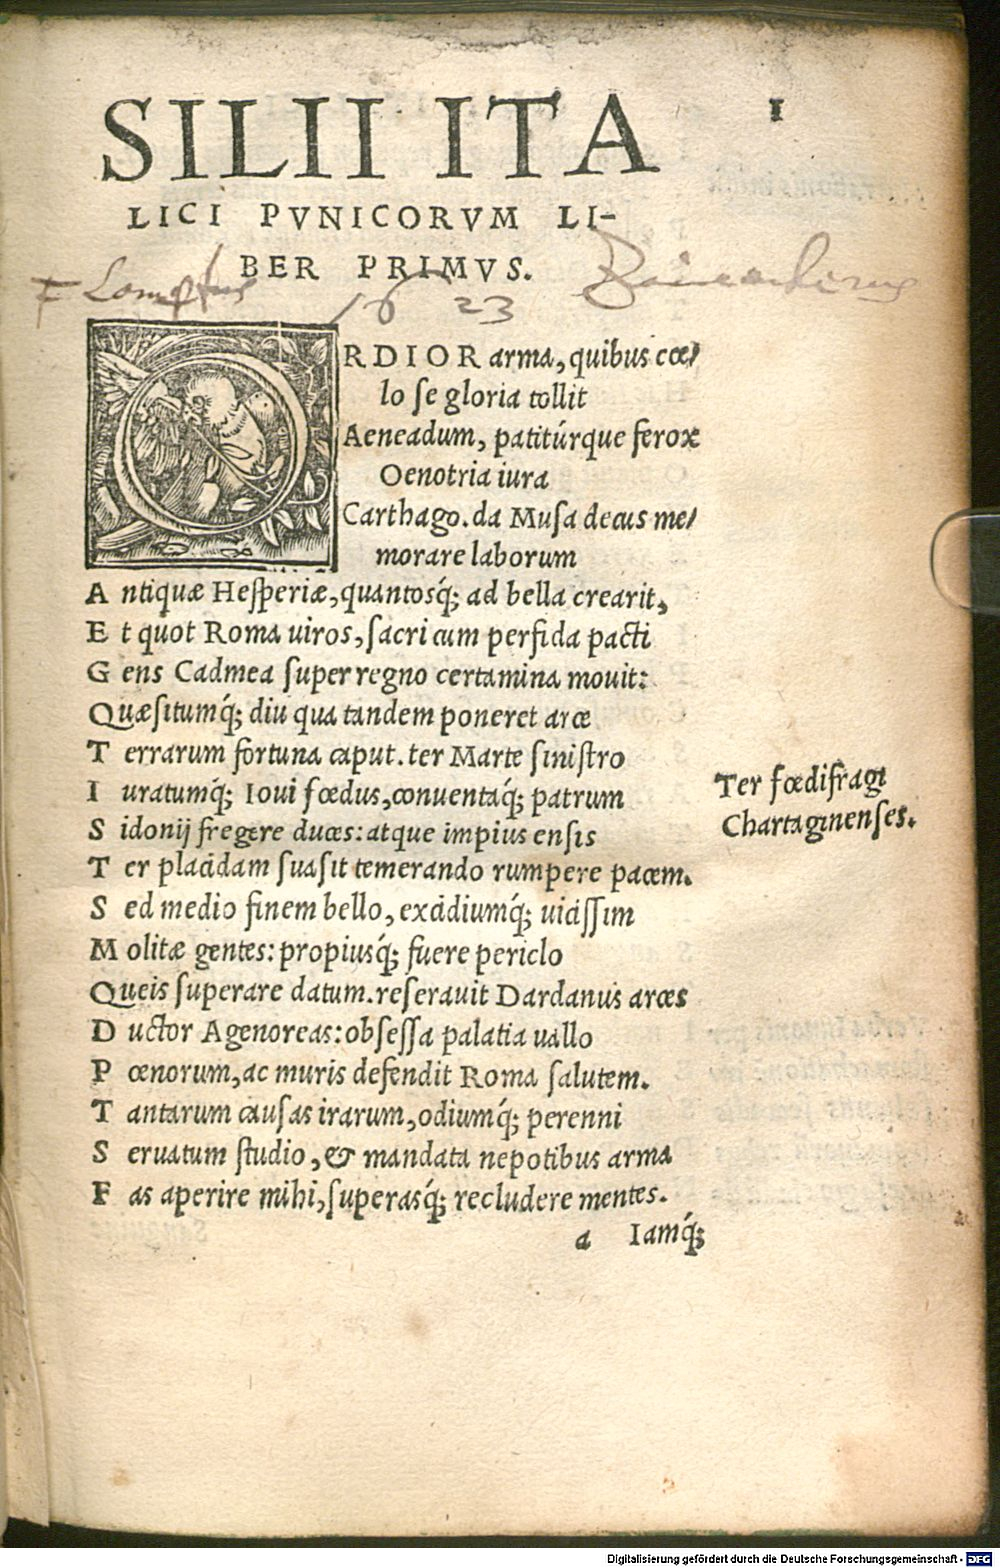 SILII ITA 1
LICI PVNICORVM LI-
BER PRIMVS.
1623
ORDIOR arma, quibus cœ-
lo se gloria tollit
Aeneadum, patitúrque ferox
Oenotria iura
Carthago. da Musa decus me-
morare laborum
Antiquæ Hesperiæ, quantosq́; ad bella crearit,
Et quot Roma uiros, sacri cum perfida pacti
Gens Cadmea super regno certamina mouit:
Quæsitumq́; diu qua tandem poneret arce
Terrarum fortuna caput. ter Marte sinistro
Iuratumq́; Ioui fœdus, conuentaq́; patrum
Sidonij fregere duces: atque impius ensis
Ter placidam suasit temerando rumpere pacem.
Sed medio finem bello, excidiumq́; uicissim
Molitæ gentes: propiusq́; fuere periclo
Queis superare datum. reserauit Dardanus arces
Ductor Agenoreas: obsessa palatia uallo
Pœnorum, ac muris defendit Roma salutem.
Tantarum causas irarum, odiumq́; perenni
Seruatum studio, & mandata nepotibus arma
Fas aperire mihi, superasq́; recludere mentes.
a Iamq́;
Ter fœdifragi
Chartaginenses.
Digitalisierung gefördert durch die Deutsche Forschungsgemeinschaft - DFG